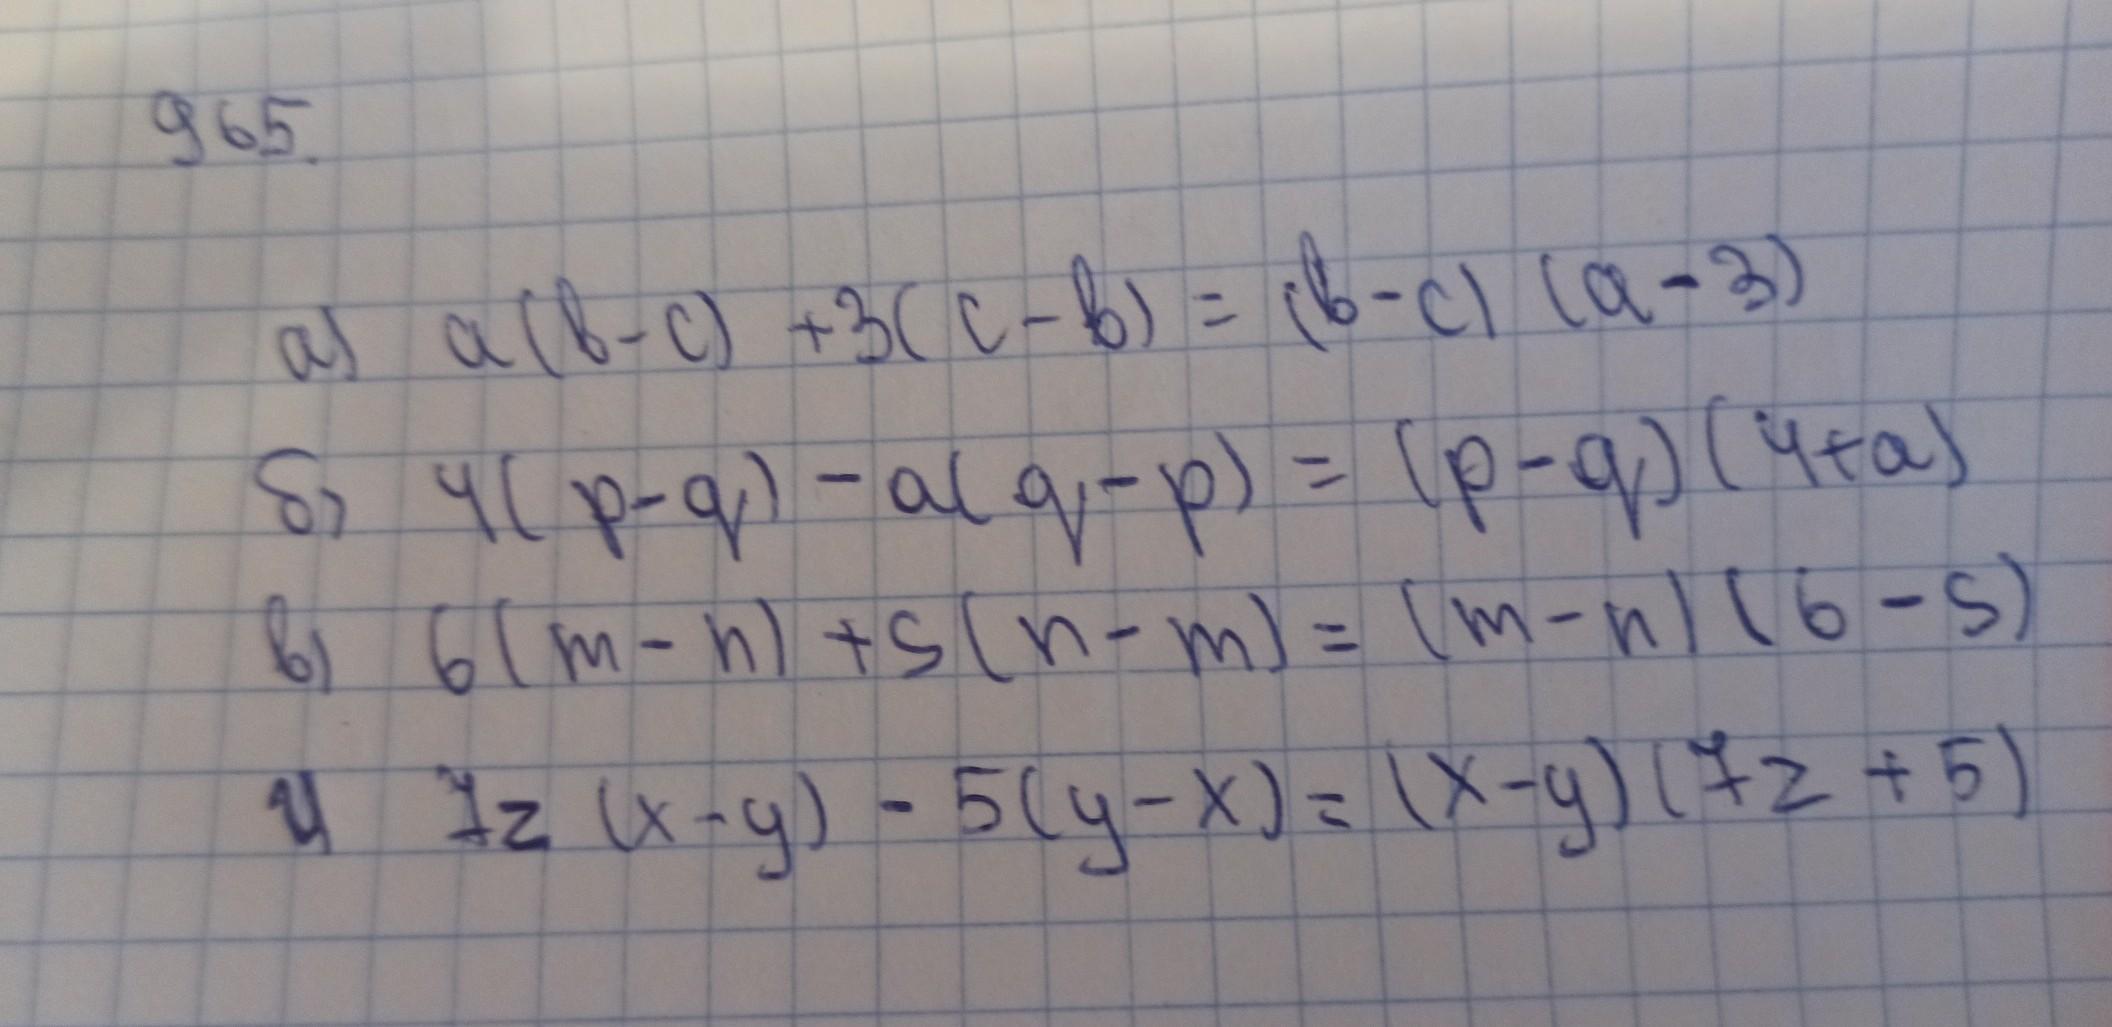 965.
а) a(b-c) +3(c-b) = (b-c) (a-3)
б) 4(p-q) -a(q-p) = (p-q)(4+a)
в) 6(m-n) +5(n-m) = (m-n) (6-5)
7z (x-y) - 5(y-x) = (x-y)(7z +5)